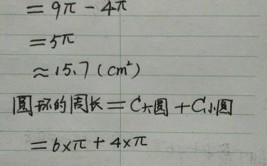 =9π-4π
=5π
≈15.7(cm²)
圆环的周长=C大圆+C小圆
=6×π+4×π